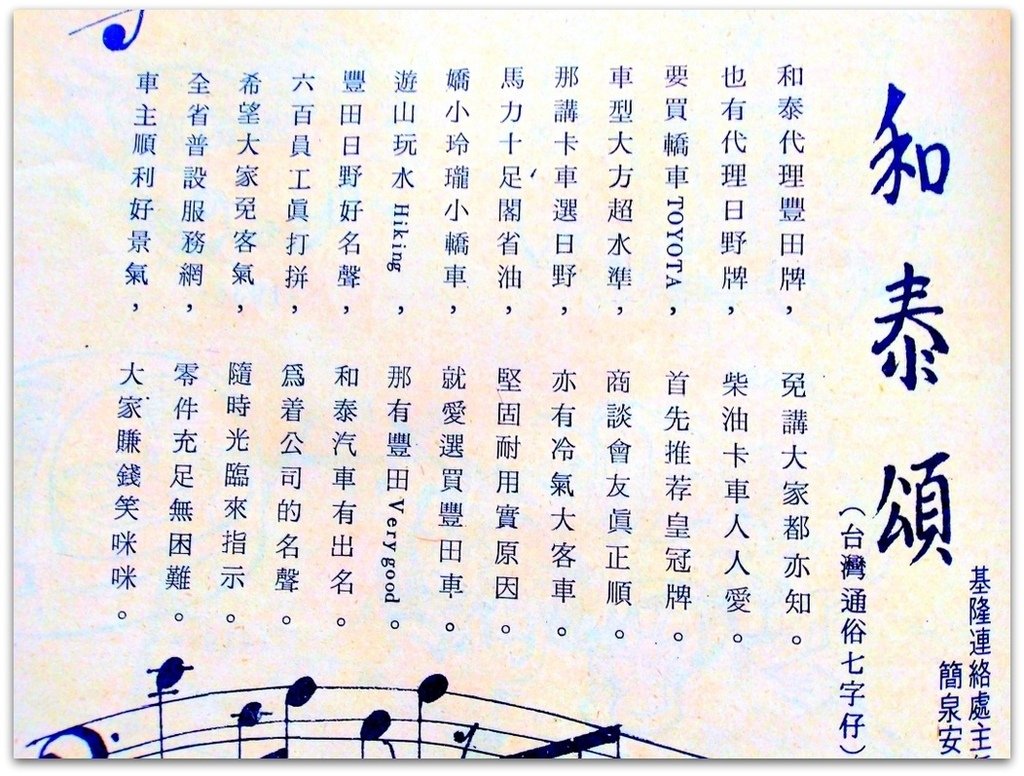 和泰頌
(台灣通俗七字仔)
基隆連絡處主任
簡泉安
和泰代理豐田牌，免講大家都亦知。
也有代理日野牌，柴油卡車人人愛。
要買轎車TOYOTA，首先推荐皇冠牌。
車型大方超水準，商談會友眞正順。
那講卡車選日野，亦有冷氣大客車。
馬力十足閣省油，堅固耐用實原因。
嬌小玲瓏小轎車，就愛選買豐田車。
遊山玩水Hiking，那有豐田Verygood。
豐田日野好名聲，和泰汽車有出名。
六百員工眞打拼，爲着公司的名聲。
希望大家免客氣，隨時光臨來指示。
全省普設服務網，零件充足無困難。
車主順利好景氣，大家賺錢笑咪咪。